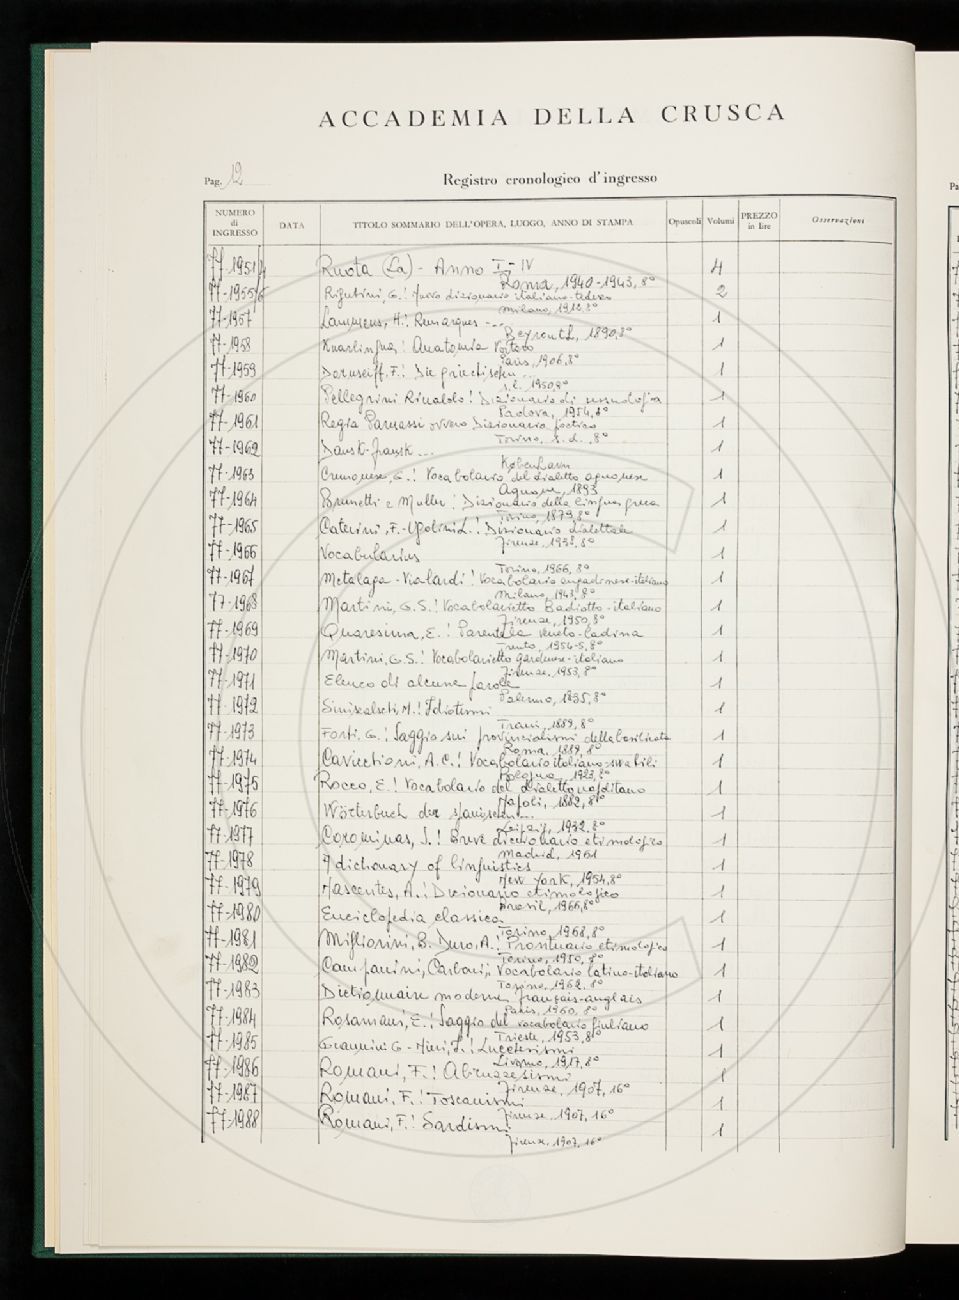 ACCADEMIA DELLA CRUSCA
Pag. 12
Registro cronologico d'ingresso
NUMERO di INGRESSO DATA TITOLO SOMMARIO DELL'OPERA, LUOGO, ANNO DI STAMPA Opuscoli Volumi PREZZO in lire Osservazioni
77-1951/4 Ruota (La) - Anno I - IV 4
Roma, 1940-1943, 8°
77-1955/6 Rigutini, G.: Nuovo dizionario italiano-tedesco 2
Milano, 1912 8°
77-1957 Lammens, H.: Remarques -.. 1
Beyrouth, 1890,8°
77-1958 Anatomia 1
Paris, 1906,8°
77-1959 Dornseiff, F.: Die griechischen ... 1
s.l. 1950,8°
77-1960 Pellegrini Rinaldo: Dizionario di 1
Padova, 1954, 8°
77-1961 Regia Parnassi ovvero Dizionario poetico 1
Torino, s.d., 8°
77-1962 Dansk-fransk ... 1
København
77-1963 Cremonese, G.: Vocabolario del dialetto agnonese 1
Agnone, 1893
77-1964 Brunetti e Muller: Dizionario della lingua greca 1
Torino, 1879, 8°
77-1965 Caterini, F. - Ugolini L.: Dizionario dialettale 1
Firenze, 8°
77-1966 Vocabularius 1
Torino, 1966, 8°
77-1967 - Vialardi: Vocabolario 1
Milano, 1943, 8°
77-1968 Martini, G.S.: Vocabolarietto Badiotto - italiano 1
Firenze, 1950, 8°
77-1969 Quaresima, E.: Parentela veneto-ladina 1
Trento, 1954-5, 8°
77-1970 Martini, G.S.: Vocabolarietto gardenese-italiano 1
Firenze, 1953, 8°
77-1971 Elenco di alcune parole 1
Palermo, 1835, 8°
77-1972 Siniscalchi, M.: Idiotismi 1
Trani, 1889, 8°
77-1973 Forti, G.: Saggio sui provincialismi della basilicata 1
Roma, 1889, 8°
77-1974 Cavicchioni, A.C.: Vocabolario italiano-swahili 1
Bologna, 1923, 8°
77-1975 Rocco, E.: Vocabolario del dialetto napolitano 1
Napoli, 1882, 8°
77-1976 Wörterbuch der spanischen... 1
Leipzig, 1932, 8°
77-1977 Corominas, J.: Breve diccionario etimologico 1
Madrid, 1961
77-1978 A dictionary of linguistics 1
New York, 1954,8°
77-1979 Nascentes, A.: Dicionario etimologico 1
Brasil, 1966,8°
77-1980 Enciclopedia classica 1
Torino, 1968, 8°
77-1981 Migliorini, B. Duro, A.: Prontuario etimologico 1
Torino, 1950, 8°
77-1982 Campanini, Carboni; Vocabolario latino-italiano 1
Torino, 1962, 8°
77-1983 Dictionnaire moderne français-anglais 1
Paris, 1960, 8°
77-1984 Rosamani, E.: Saggio del vocabolario giuliano 1
Trieste, 1953, 8°
77-1985 Giannini G - Nieri, I.: Lucchesismi 1
Livorno, 1917, 8°
77-1986 Romani, F.: Abruzzesismi 1
Firenze, 1907, 16°
77-1987 Romani, F.: Toscanismi 1
Firenze, 1907, 16°
77-1988 Romani, F.: Sardismi 1
Firenze, 1907, 16°